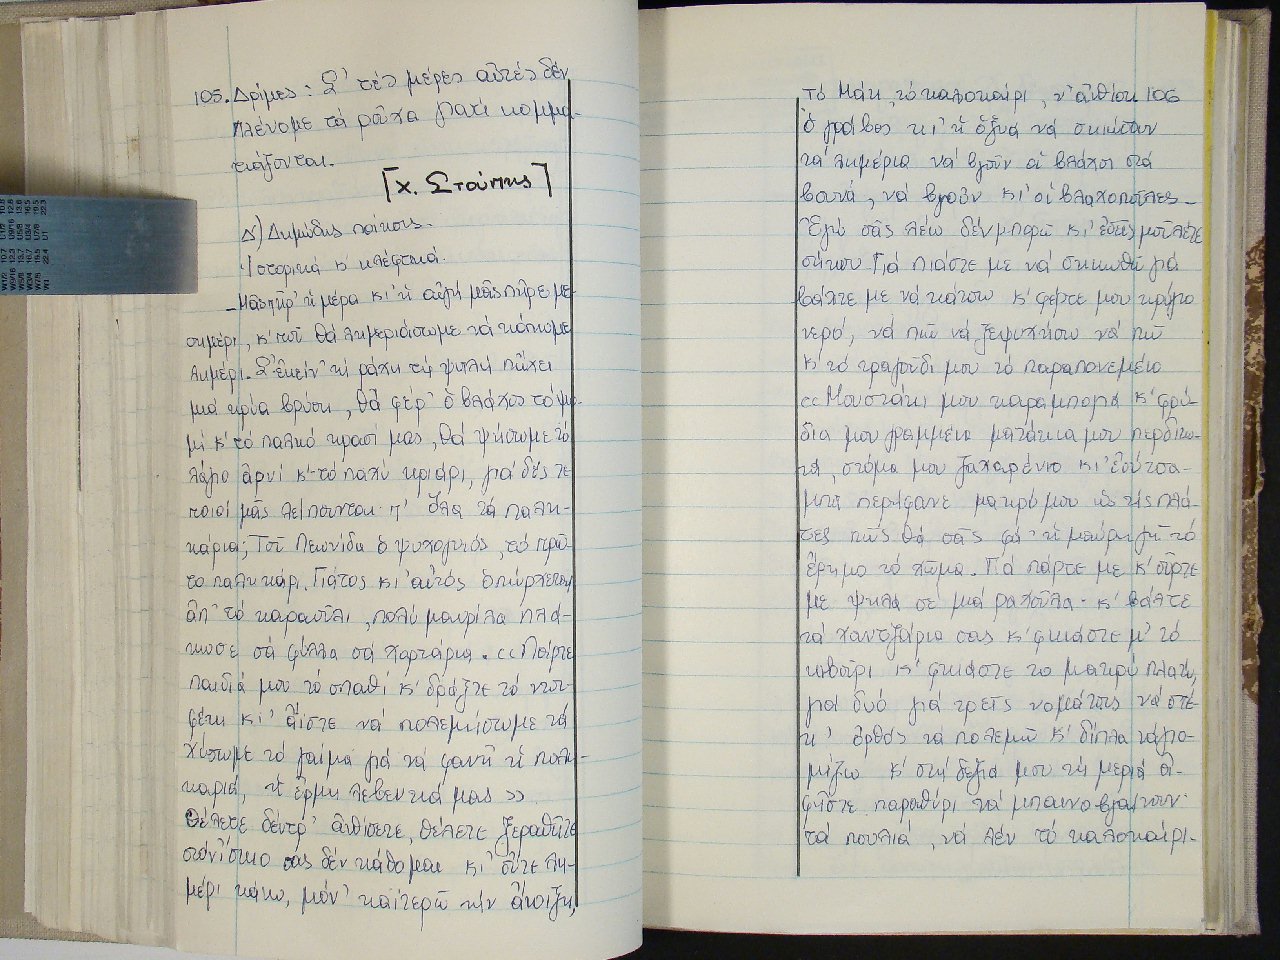 105. Δρίμες: Σ' τές μέρες αὐτές δέν
πλένομε τά ροῦχα γιατί κομμα-
τιάζονται.
[Χ. Στούπης]
Δ') Δημώδης ποίησις.
Ἱστορικά κ' κλέφτικά.
- Μᾶς πῆρ' ἡ μέρα κι' ἡ αὐγή μᾶς πῆρε με-
σημέρι, κ' ποῦ θά λημεριάσωμε νά κάνωμε
λημέρι. Σ' ἐκείν' τή ράχη τή ψηλή πὤχει
μιά κρύα βρύση, θά φέρ' ὁ βλάχος τό ψω-
μί κ' τό παλιό κρασί μας, θά ψήσωμε τό
λάγιο ἀρνί κ' τό παχύ κριάρι, γιά δές τε
ποιοί μᾶς λείπουνται π' ὅλα τά παλη-
κάρια; Τοῦ Λεωνίδα ὁ ψυχογυιός, τό πρῶ-
το παληκάρι. Γιάτος κι' αὐτός ὁπὤρχεται
ἀπ' τό καραοῦλι, πολύ μαυρίλα πλά-
κωσε στά φύλλα στά χορτάρια. «Πάρτε
παιδιά μου τό σπαθί κ' δράξτε τό ντου-
φέκι κι' ἄϊστε νά πολεμήσωμε νά
χύσωμε τό γαίμα γιά νά φανῆ ἡ παλη-
καριά, ἡ ἔρμη λεβεντιά μας».
Θέλετε δέντρ' ἀνθίσετε, θέλετε ξεραθῆτε
στόν ἴσκιο σας δέν κάθομαι κι' οὔτε λη-
μέρι κάνω, μόν' καρτερῶ τήν ἄνοιξη,
τό Μάη, τό καλοκαίρι, ν' ἀνθίση 106
ὁ γράβος κι' ἡ ὀξυά νά σκιώσουν
τά λημέρια νά βγοῦν οἱ βλάχοι στά
βουνά, νά βγοῦν κι' οἱ βλαχοποῦλες -
Ἐγώ σᾶς λέω δέν μπορῶ κι' ἐσεῖς μοῦ λέτε
σήκου Γιά πιάστε με νά σηκωθῶ γιά
βάλτε με νά κάτσω κ' φέρτε μου κρύγιο
νερό, νά πιῶ νά ξεψυχήσω νά πῶ
κ' τό τραγοῦδι μου τό παραπονεμένο
«Μουστάκι μου καραμπογιά κ' φρύ-
δια μου γραμμένα ματάκια μου περδικω-
τά, στόμα μου ζαχαρένιο κι' ἐσύ τσα-
μπᾶ περήφανε μακρύ μου ὡς τίς πλά-
τες πῶς θά σᾶς φά' ἡ μαύρη γῆ τό
ἔρημο τό χῶμα. Γιά πάρτε με κ' σῦρτε
με ψηλά σέ μιά ραχοῦλα. κ' βάλτε
τά χαντζάρια σας κ' φκιάστε μ' τό
κιβοῦρι κ' φκιάστε το μακρύ πλατύ,
γιά δυό γιά τρεῖς νομάτους νά στέ-
κ' ὀρθός νά πολεμῶ κ' δίπλα νά γιο-
μίζω κ' στή δεξιά μου τή μεριά ἀ-
φῆστε παραθύρι νά μπαινοβγαίνουν
τά πουλιά, νά λέν τό καλοκαίρι.